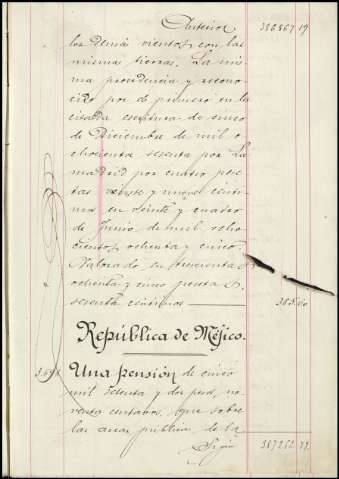 Anterior 386867 19
los demás vientos con las
mismas tierras. La mis
ma procedencia y recono
cido por el primero en la
citada escritura de cinco
de Diciembre de mil o
chocientos sesenta por La
madrid por cuatro pese
tas y nueve cénti
mos en veinte y cuatro
de Junio de mil ocho
cientos ochenta y cinco.
Valorado en trescientas
ochenta y cinco pesetas
sesenta céntimos 385.60
República de Méjico.
Una pensión de cinco
mil setenta y dos pesos, no
venta centavos, que sobre
las cajas públicas de la
Sigue 387252 77